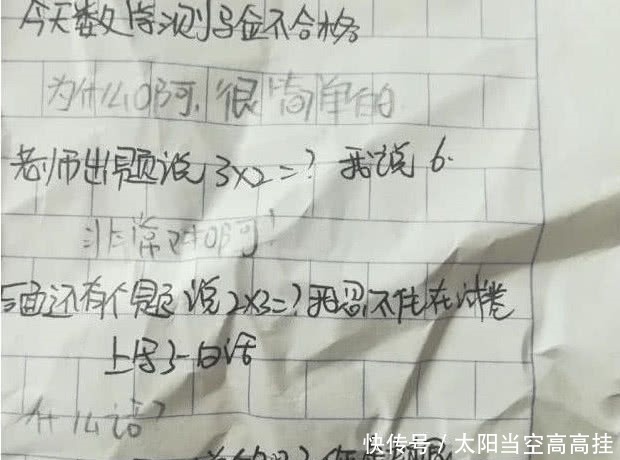 今天数学测验不合格
为什么啊,很简单的
老师出题说 3×2=? 我说 6.
非常对啊!
后面还有个题说2×3=?我忍不住在试卷
上写了一句话
什么话?
快传号/太阳当空高高挂